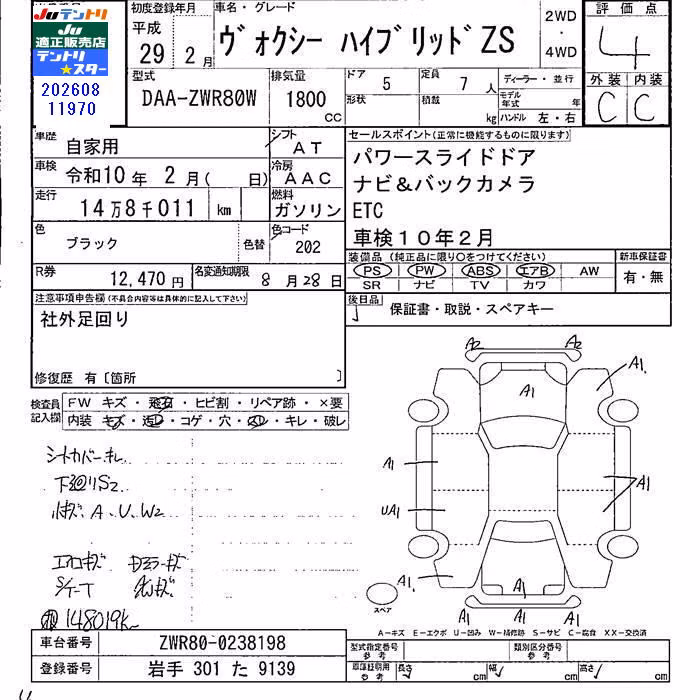 Juテントリ
Ju
適正販売店
テントリ
★スター
202608
11970
初度登録年月
平成
29 2月
車名・グレード
ヴォクシー ハイブリッドZS
2WD
・
4WD
評価点
4
外装 内装
C C
型式
DAA-ZWR80W
排気量
1800
CC
ドア 5
定員 7 人
ディーラー・並行
形状
積載 kg
モデル年式 年
ハンドル 左・右
車歴 自家用
シフト AT
車検 令和10年 2月( 日)
冷房 AAC
走行 14万8千011 km
燃料 ガソリン
色 ブラック
色替
色コード 202
R券 12,470円
名変通知期限 8月28日
セールスポイント(正常に機能するものに限ります)
パワースライドドア
ナビ&バックカメラ
ETC
車検10年2月
装備品 (純正品に限り○をつけてください)
新車保証書
PS PW ABS エアB AW
有・無
SR ナビ TV カワ
後日品
保証書・取説・スペアキー
注意事項申告欄(不具合内容等は具体的に記入して下さい)
社外足回り
修復歴 有〔箇所 〕
検査員記入欄
FW キズ・飛石・ヒビ割・リペア跡・×要
内装 キズ・汚レ・コゲ・穴・スレ・キレ・破レ
シートカバーキレ
下回りS2
小キズ、A、U、W2
エアロキズ
148019K
A2 A2
A1
A1
A1
A1
UA1
A1
A1
A1
A1 A1 A1
スペア
A-キズ E-エクボ U-凹み W-補修跡 S-サビ C-腐食 XX-交換済
車台番号 ZWR80-0238198
登録番号 岩手 301 た 9139
型式指定番号
参考
類別区分番号
参考
車庫証明用
参考
長さ cm
幅 cm
高さ cm